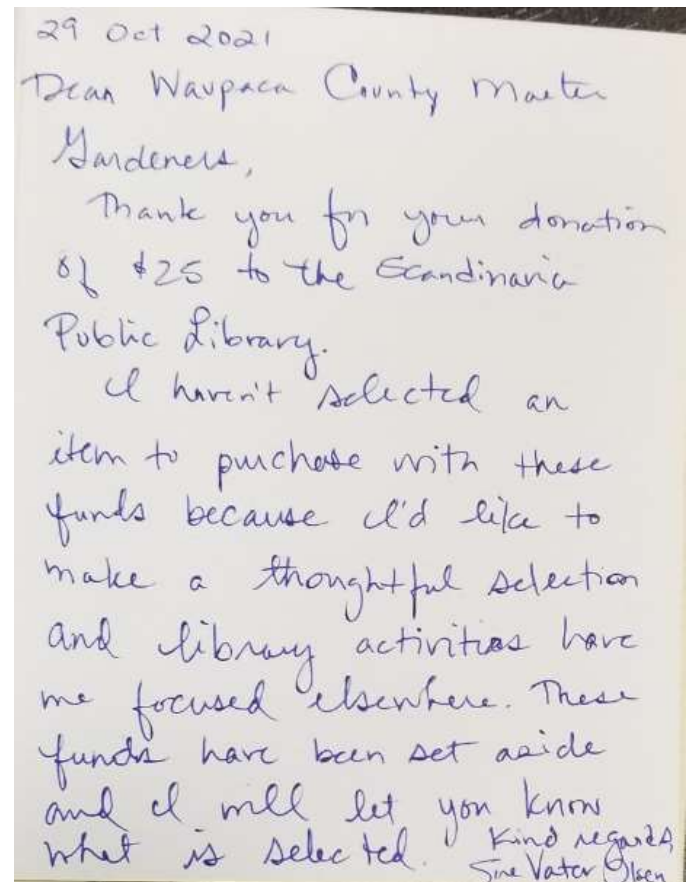 29 Oct 2021
Dear Waupaca County Master
Gardeners,
Thank you for your donation
of $25 to the Scandinavia
Public Library.
I haven't selected an
item to purchase with these
funds because I'd like to
make a thoughtful selection
and library activities have
me focused elsewhere. These
funds have been set aside
and I will let you know
what is selected. Kind regards,
Sue Vater Olsen